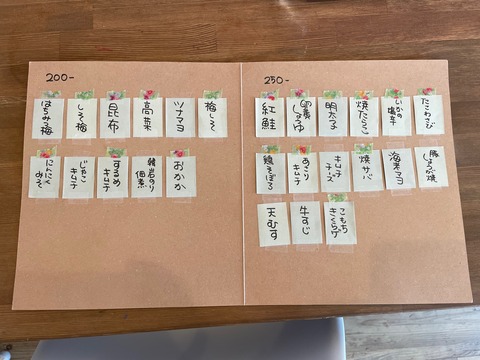 200-
はちみつ梅
しそ梅
昆布
高菜
ツナマヨ
梅しそ
にんにく
みそ
じゃこ
キムチ
するめ
キムチ
のり
佃煮
おかか
250-
紅鮭
卵黄
しょうゆ
明太子
焼たらこ
いかの
塩辛
たこわさび
鶏そぼろ
あさり
キムチ
キムチ
チーズ
焼サバ
海老マヨ
豚しょうが焼
天むす
牛すじ
こもち
きくらげ